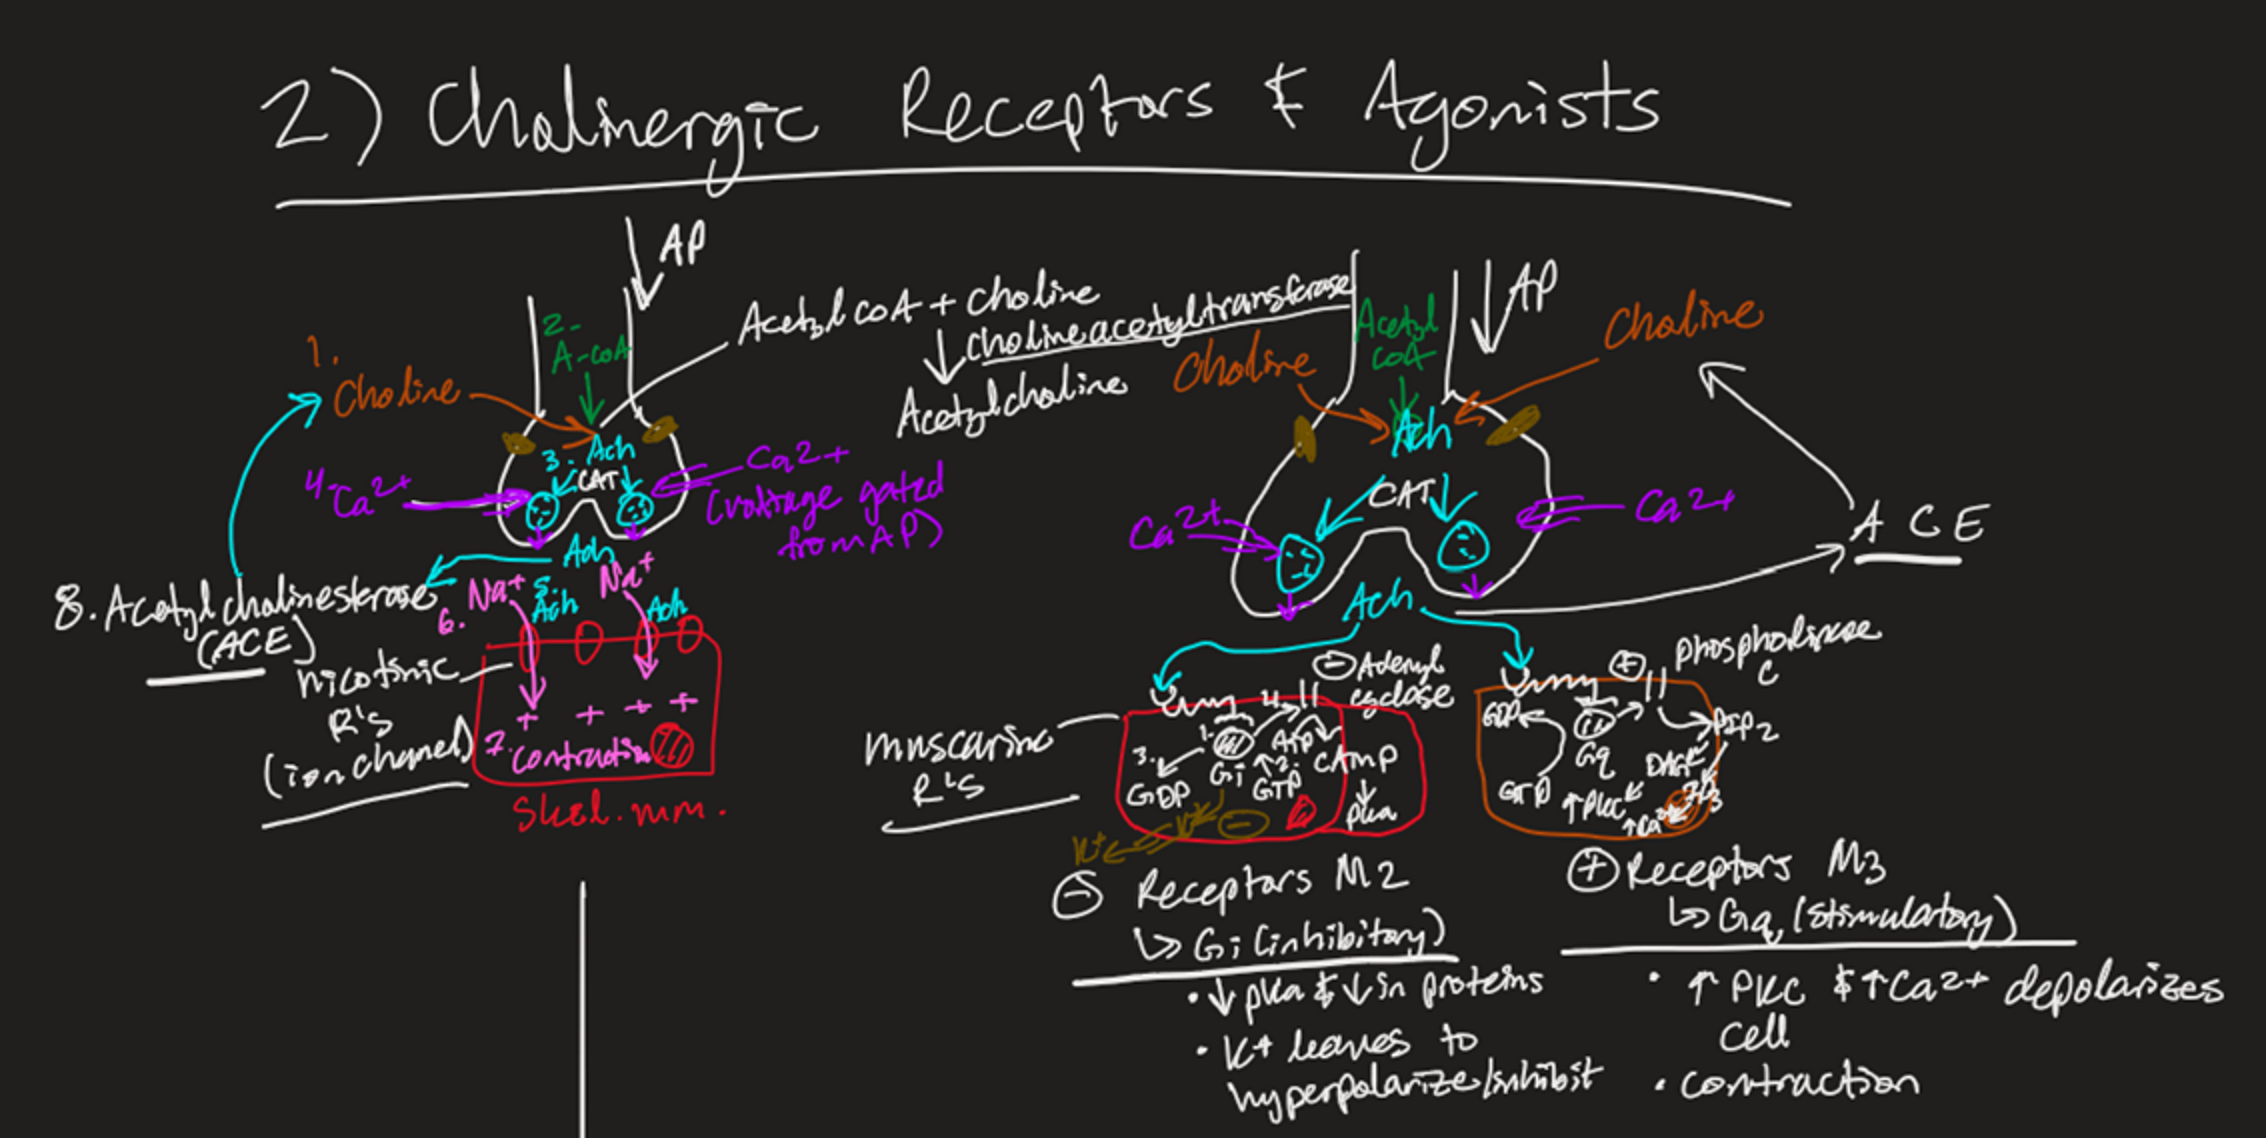 2) Cholinergic Receptors & Agonists
AP
2-
A-coA
1.
Choline
Acetyl coA + Choline
↓ Choline acetyltransferase
Acetylcholine
3. Ach
CAT
4- Ca2+
Ca2+
(voltage gated
from AP)
Ach
8. Acetylcholinesterase
(ACE)
6. Na+
5.
Ach
Na+
Ach
nicotinic
R's
(ion channel)
+ + + +
7. contraction
Skel. mm.
AP
Acetyl
coA
Choline
Choline
Ach
CAT
Ca2+
Ca2+
ACE
Ach
muscarinic
R's
⊖ Adenyl
cyclase
4.
1.
3.
GDP
Gi
↑2.
GTP
ATP
CAmp
↓
pka
K+
K+
⊖
⊖ Receptors M2
↳ Gi (inhibitory)
• ↓ pka & ↓ in proteins
• K+ leaves to
hyperpolarize/inhibit
⊕
phospholipase
C
GDP
Gq
GTP
PIP2
DAG
IP3
↑PKC
↑Ca2+
⊕ Receptors M3
↳ Gq (stimulatory)
• ↑ PKC & ↑ Ca2+ depolarizes
cell
• contraction